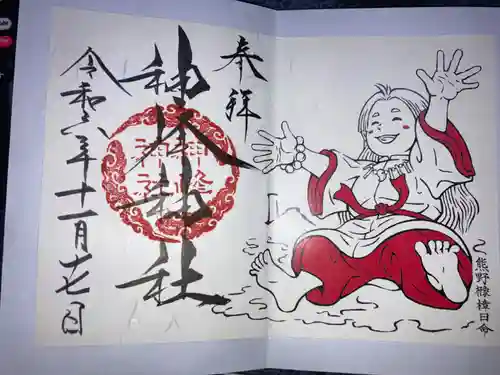 奉拝
神峯神社
令和六年十一月十七日
熊野櫲樟日命